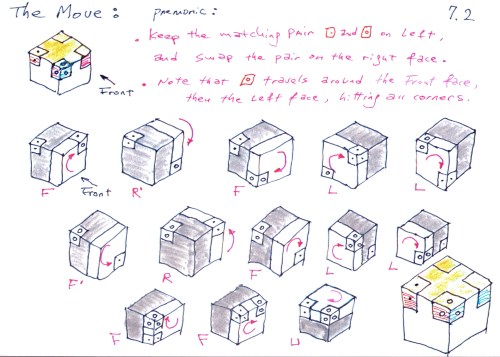 The Move:
pnemonic:
7.2
• Keep the matching pair and on Left,
and swap the pair on the right face.
• Note that travels around the Front face,
then the Left face, hitting all corners.
Front
F
Front
R'
F
L
L
F'
R
F
L
L
F
F
U